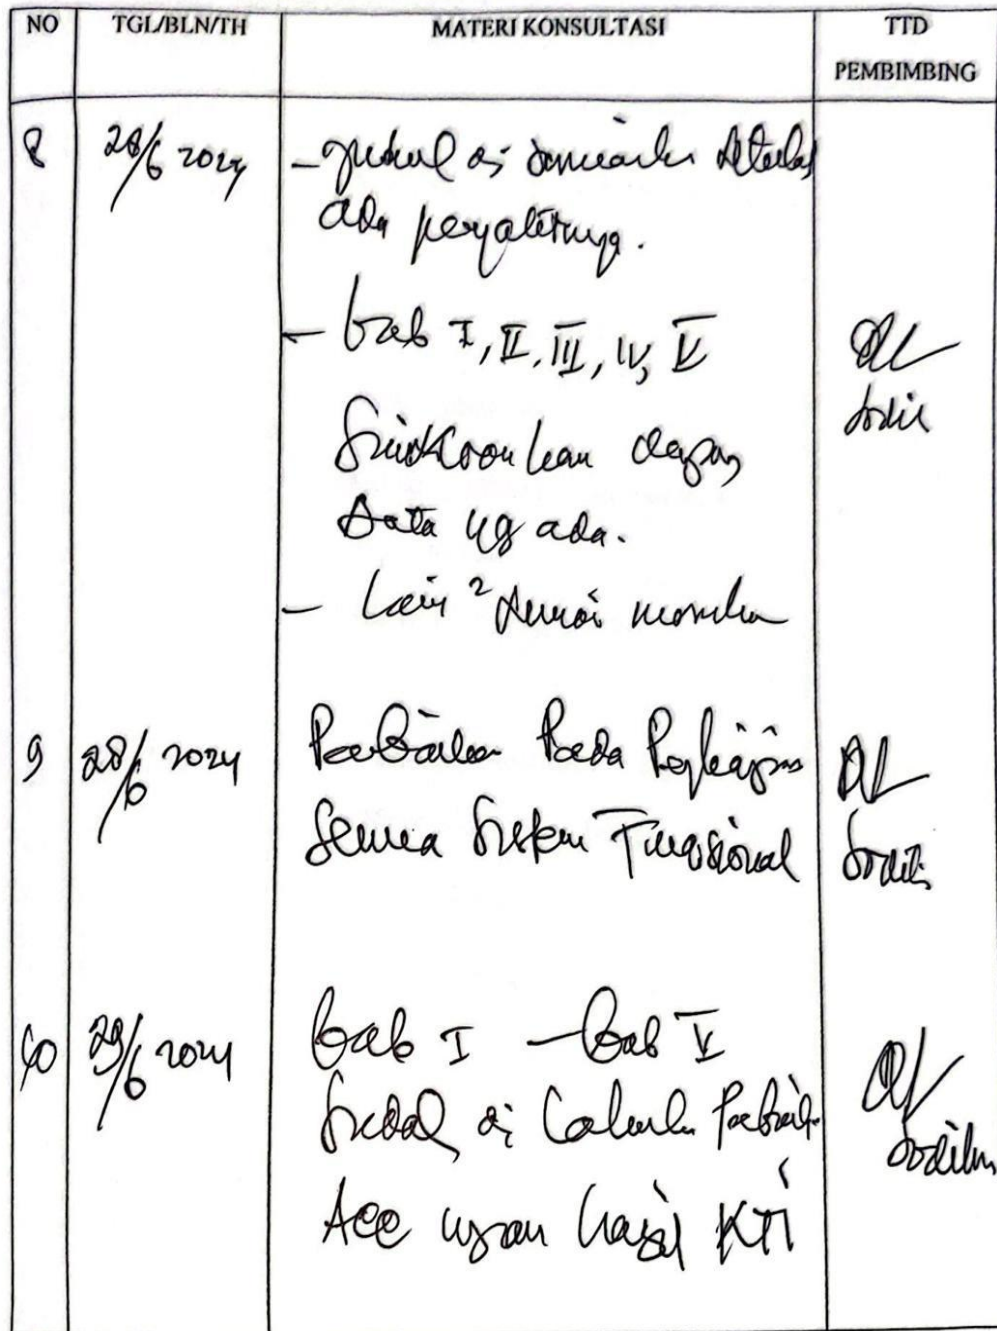 NO TGL/BLN/TH MATERI KONSULTASI TTD
PEMBIMBING
8 28/6 2024 - judul di
ada penyakitnya.
- bab I, II, III, IV, V
Sinkronkan dengan
Data yg ada.
- Lain2
9 28/6 2024 Perbaikan Pada Pengkajian
Semua Sistem Fungsional
10 29/6 2024 bab I - Bab V
Sudah di Perbaiki
Acc ujian hasil KTI